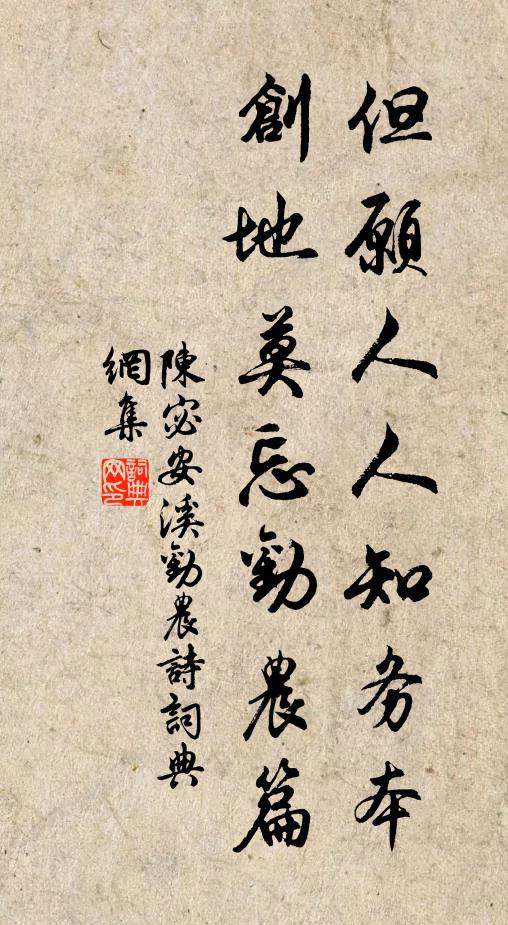 但願人人知务本
創地莫忘勸農篇
陳宓安溪勸農詩詞典
網集
詞典
网印